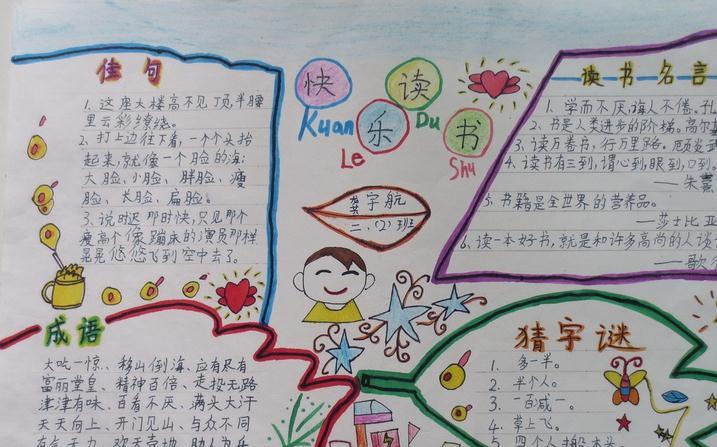 佳句
1. 这座大楼高不见顶,半腰
里云彩缭绕。
2、打上边往下看,一个个头抬
起来,就像一个脸的海:
大脸、小脸、胖脸、瘦
脸、长脸、扁脸。
3、说时迟那时快,只见那个
瘦高个像蹦床的演员那样
晃晃悠悠飞到空中去了。
快乐读书
Kuan Le Du Shu
宇航
二.(2)班
读书名言
1. 学而不厌,诲人不倦。孔
2、书是人类进步的阶梯。高尔
3、读万卷书,行万里路。
4、读书有三到,谓心到,眼到,口到。
——朱熹
5、书籍是全世界的营养品。
——莎士比亚
6、读一本好书,就是和许多高尚的人谈
——歌
成语
大吃一惊、移山倒海、应有尽有
富丽堂皇、精神百倍、走投无路
津津有味、百看不厌、满头大汗
天天向上、开门见山、与众不同
有气无力、欢天喜地、助人为乐
猜字谜
1. 多一半。
2. 半个人。
3. 一百减一。
4. 草上飞。
5. 四个人搬木头